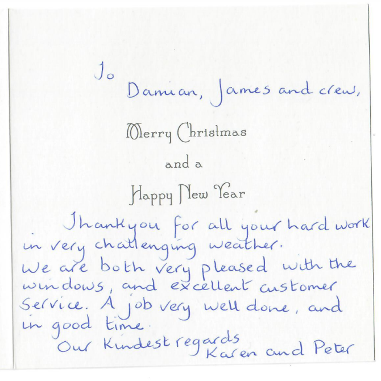 To
Damian, James and crew,
Merry Christmas
and a
Happy New Year
Thankyou for all your hard work
in very challenging weather.
We are both very pleased with the
windows, and excellent customer
Service. A job very well done, and
in good time.
Our Kindest regards
Karen and Peter